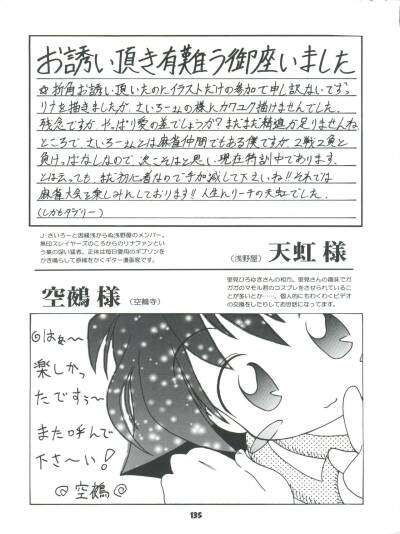 お誘い頂き有難う御座いました
☆折角お誘い頂いたのにイラストだけの参加で申し訳ないです。
リナを描きましたが、さいろーさんの様にカワユク描けませんでした。
残念ですが、やっぱり愛の差でしょうか?まだまだ精進が足りませんね
ところで、さいろーさんとは麻雀仲間でもある僕ですが、2戦2負と
負けっぱなしなので、次こそはと思い、現在特訓中であります。
とは云っても、まだ初心者なので手加減して下さいね!!それでは
麻雀大会を楽しみにしております!!人生んリーチの天虹でした。
(しかもダブリー)
J・さいろーと因縁浅からぬ浅野屋のメンバー。
無印スレイヤーズのころからのリナファンとい
う業の深い猛者。正体は毎日愛用のギブソンを
かき鳴らして原稿をかくギター漫画家です。
(浅野屋) 天虹 様
空鵺 様 (空鵺寺)
里見ひろゆきさんの相方。里見さんの趣味でガ
ガガのマモル君のコスプレをさせられているこ
とが多いとか……。個人的にもわくわくビデオ
の交換をしたりしてお世話になってます。
◎はぁ〜
楽しかっ
たですぅ〜
また呼んで
下さ〜い!
@空鵺@
135